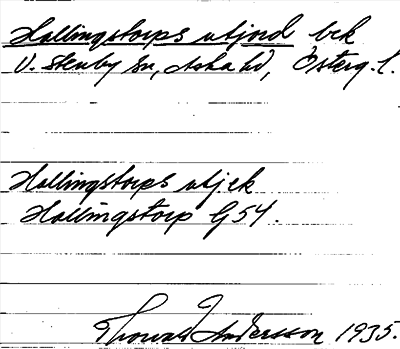 Hallingstorps utjord bek
V. Stenby sn, Aska hd, Österg. l.
Hallingstorps utjek
Hallingstorp G54.
Thorvald Andersson 1935.